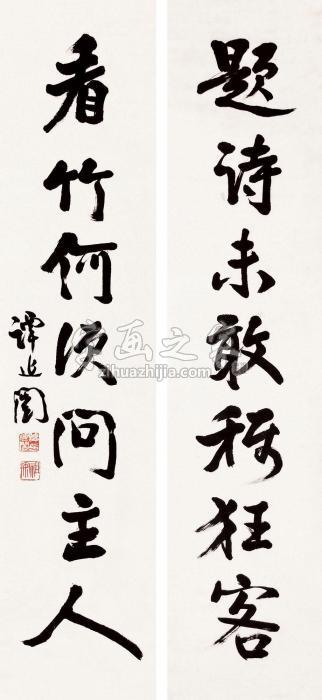 题诗未敢称狂客
看竹何须问主人
谭延闿
字画之家
zihuazhijia.com